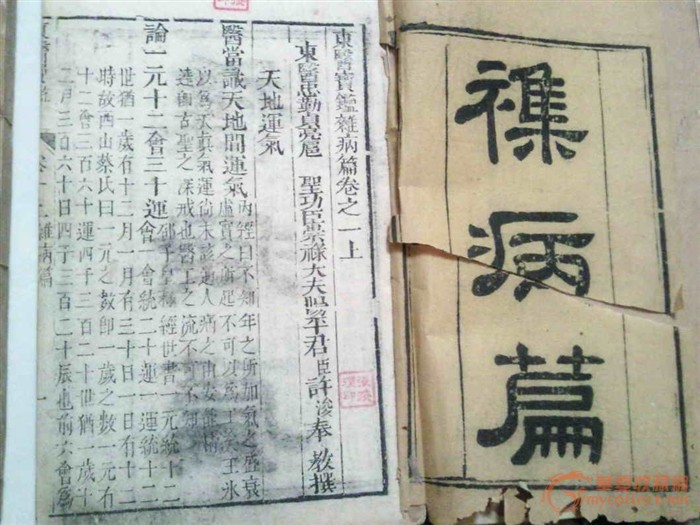 襍病篇
東醫寶鑑雜病篇卷之一上
東醫忠勤貞亮扈 聖功臣崇祿大夫陽平君臣許浚奉 教撰
天地運氣
醫當識天地間運氣
內經曰不知年之所加氣之盛衰
虛實之所起不可以爲工矣王冰
以爲天眞氣運尚未該通人病之由安能精
達古聖之深戒也醫工之流不可不知
論一元十二會三十運
邵子皇極經世書一元統十二
會一會統三十運一運統十二
世猶一歲有十二月一月有三十日一日有十二
時故西山蔡氏曰一元之數即一歲之數一元有
十二會三百六十運四千三百二十世猶一歲十
二月三百六十日四千三百二十辰也前六會爲
雜病篇
一